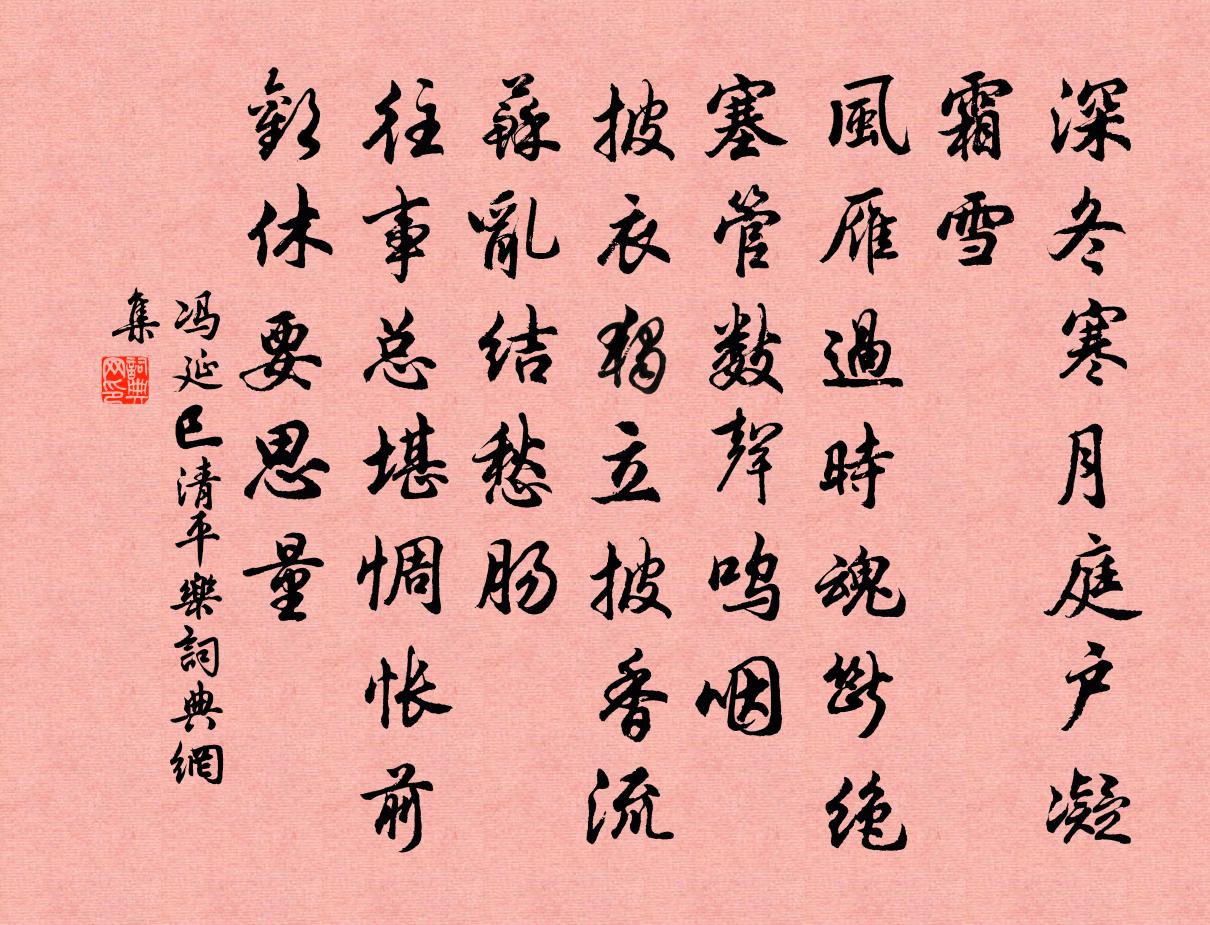 深冬寒月庭户凝
霜雪
風雁過時魂斷絶
塞管數聲嗚咽
披衣獨立披香流
蘇亂結愁腸
往事总堪惆怅前
歡休要思量
冯延巳清平樂詞典網
集
詞典
网印